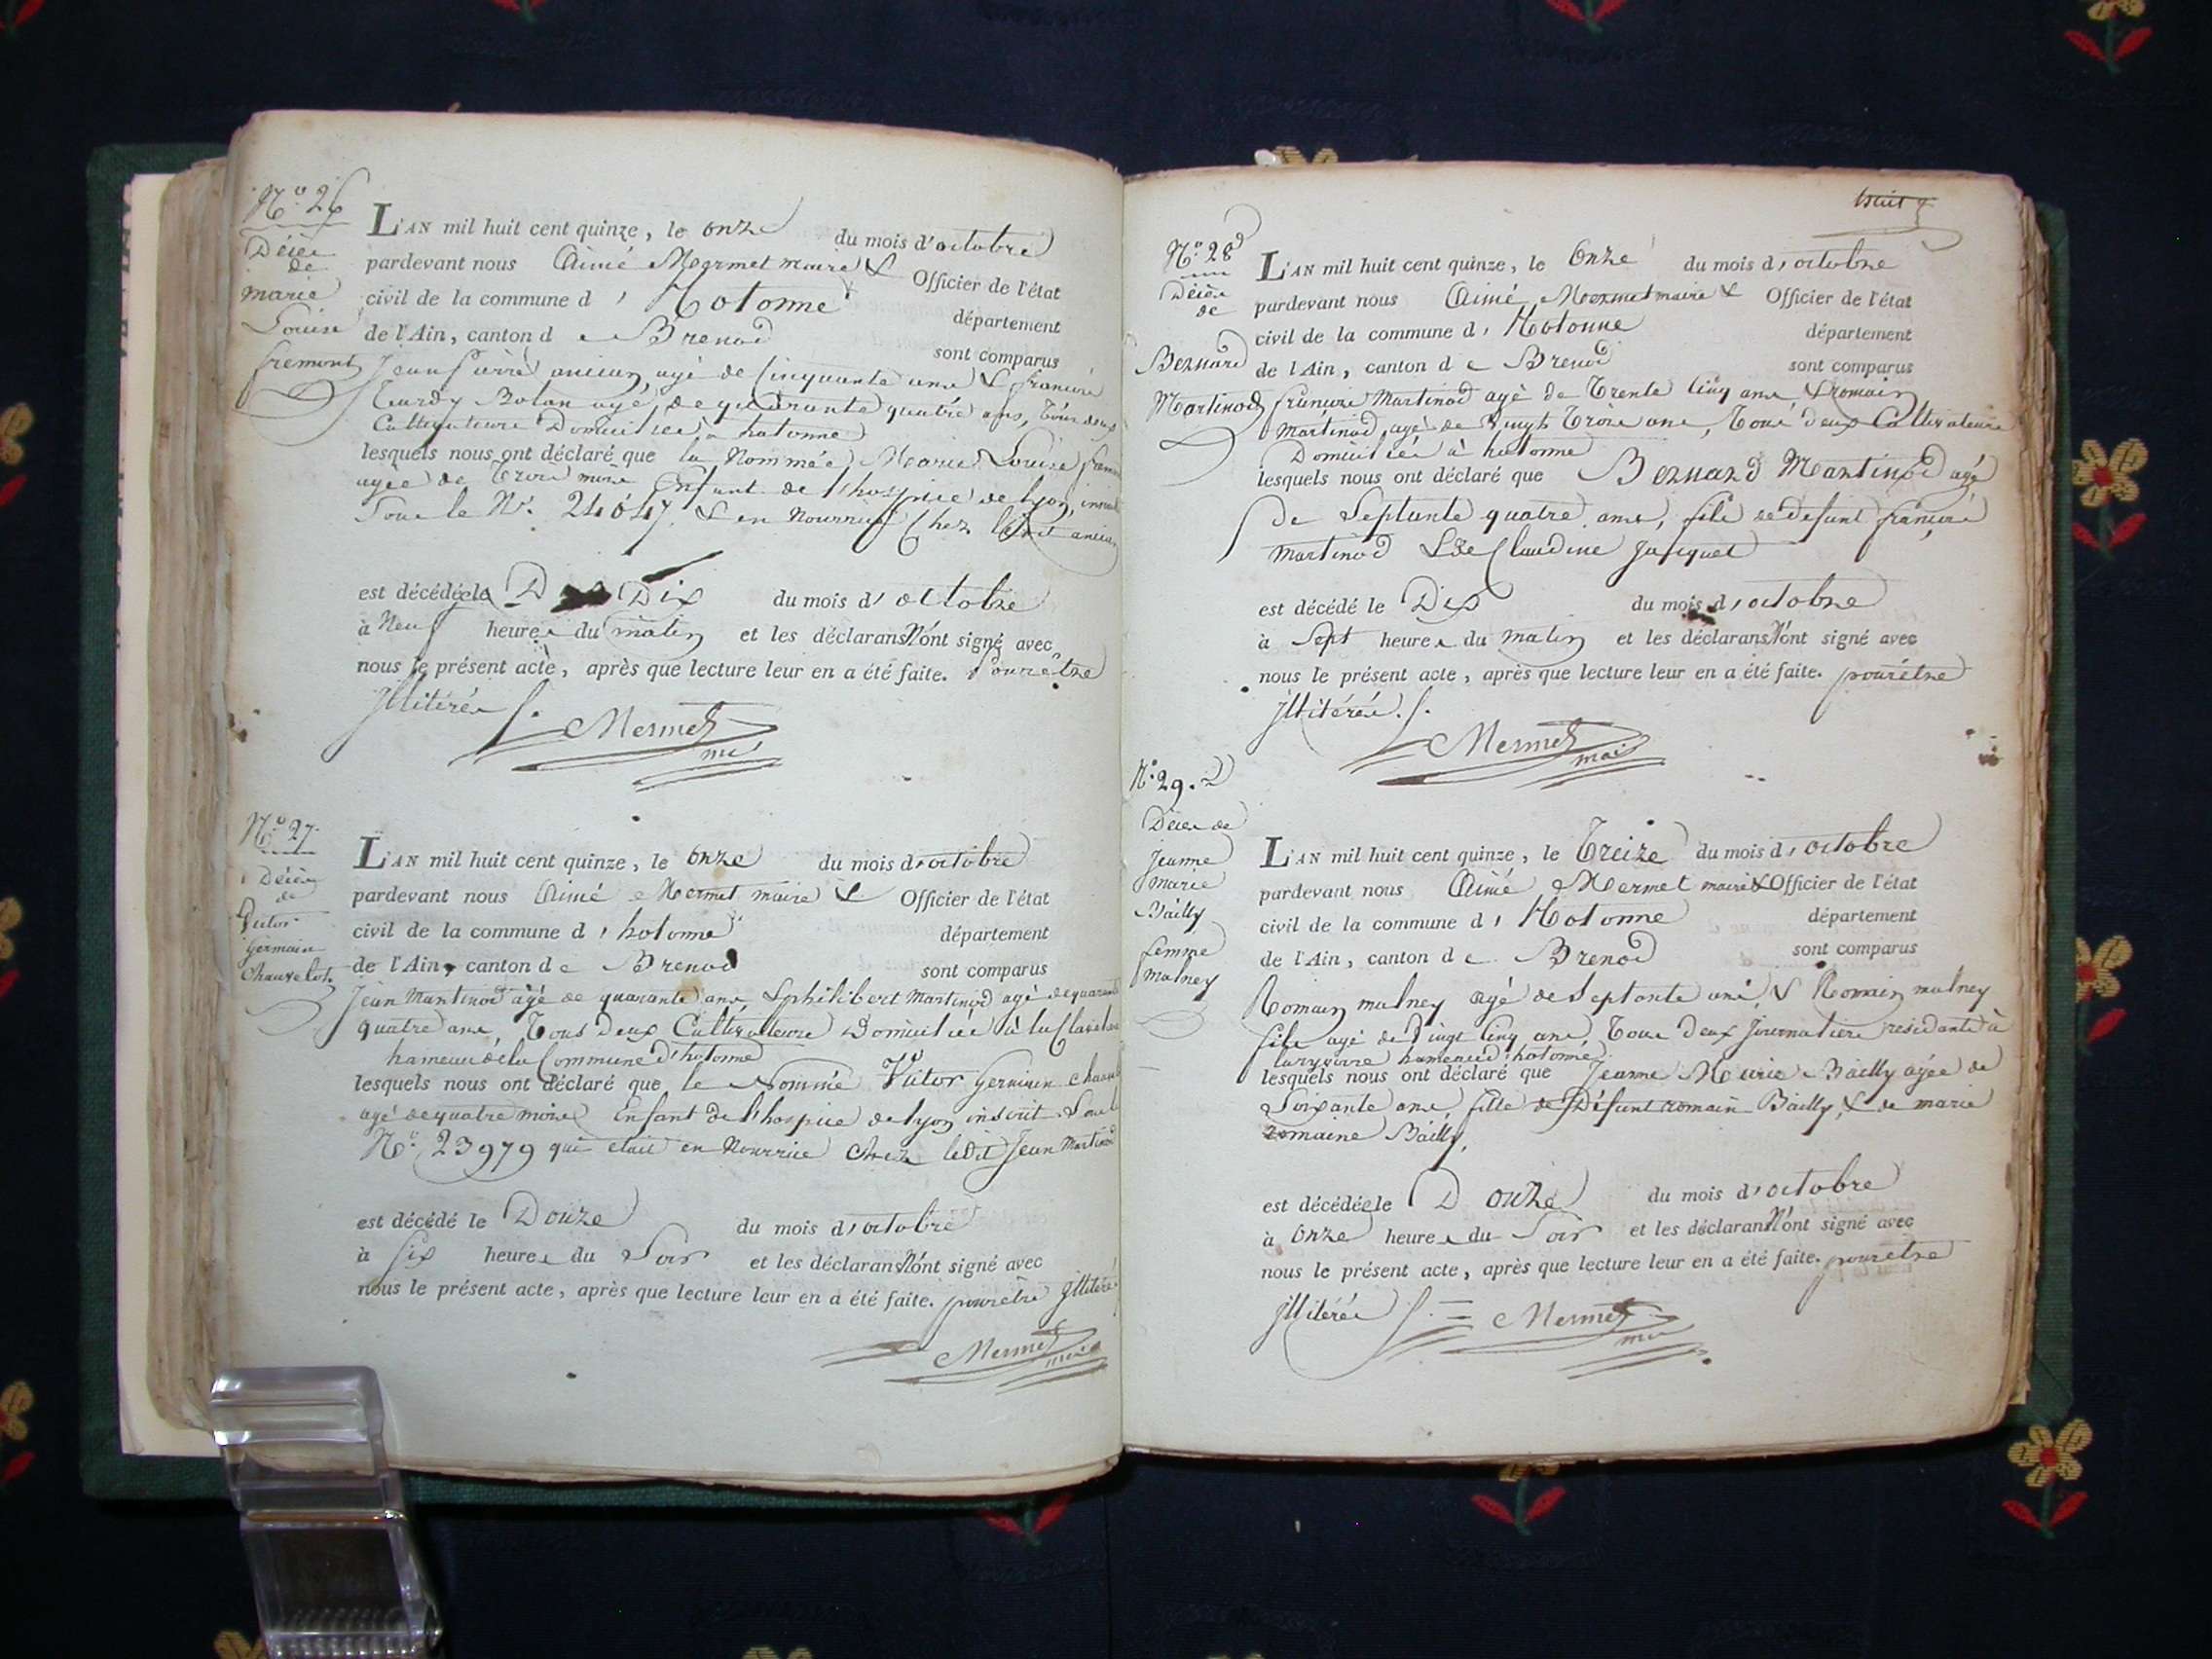 N.o 26
Décès
de
marie
Louise
fremont
L'AN mil huit cent quinze, le onze du mois d'octobre
pardevant nous Aimé Mermet maire & Officier de l'état
civil de la commune d'Hotonne département
de l'Ain, canton de Brenod sont comparus
Jean Pierre ancian agé de Cinquante ans & françois
agé de quarante quatre ans, tous deux
Cultivateurs Domiciliés a hotonne
lesquels nous ont déclaré que la Nommée Marie Louise
agée de trois mois Enfant de l'hospice de lyon,
Sous le N.o 24047 & en Nourrice Chez ledit ancian
est décédée le Dix du mois d'octobre
à Neuf heures du matin et les déclarans N'ont signé avec
nous le présent acte, après que lecture leur en a été faite. Pour être
Illitérés
Mermet
N.o 27
Décès
de
Victor
germain
Chauvelot
L'AN mil huit cent quinze, le onze du mois d'octobre
pardevant nous Aimé Mermet maire & Officier de l'état
civil de la commune d'hotonne département
de l'Ain, canton de Brenod sont comparus
Jean Martinod âgé de quarante ans & philibert Martinod agé de quarante
quatre ans, Tous Deux Cultivateurs Domiciliés à
hameau de la Commune d'hotonne
lesquels nous ont déclaré que le Nommé Victor germain
agé de quatre mois Enfant de l'hospice de lyon inscrit Sous le
N.o 23979 qui etait en Nourrice Chez ledit Jean Martinod
est décédé le Douze du mois d'octobre
à Six heures du Soir et les déclarans N'ont signé avec
nous le présent acte, après que lecture leur en a été faite. pour être Illitérés
Mermet
huit
N.o 28
Décès
de
Bernard
Martinod
L'AN mil huit cent quinze, le Onze du mois d'octobre
pardevant nous Aimé Mermet maire & Officier de l'état
civil de la commune d'Hotonne département
de l'Ain, canton de Brenod sont comparus
françois Martinod agé de Trente Cinq ans & Romain
Martinod, agé de Vingt Trois ans, Tous deux Cultivateurs
Domiciliés à hotonne
lesquels nous ont déclaré que Bernard Martinod agé
de Septante quatre ans, fils de defunt françois
Martinod & de Claudine Jacquet
est décédé le Dix du mois d'octobre
à Sept heures du matin et les déclarans N'ont signé avec
nous le présent acte, après que lecture leur en a été faite. pour être
Illitérés.
Mermet
N.o 29.
Décès de
Jeanne
Marie
Bailly
femme
Malney
L'AN mil huit cent quinze, le Treize du mois d'octobre
pardevant nous Aimé Mermet maire & Officier de l'état
civil de la commune d'Hotonne département
de l'Ain, canton de Brenod sont comparus
Romain malney agé de Septante ans & Romain malney
fils agé de Vingt Cinq ans Tous Deux Journaliers residants à
hameau d'hotonne
lesquels nous ont déclaré que Jeanne Marie Bailly agée de
Soixante ans, fille de Défunt romain Bailly, & de marie
romaine Bailly,
est décédée le Douze du mois d'octobre
à Onze heures du Soir et les déclarans N'ont signé avec
nous le présent acte, après que lecture leur en a été faite. pour être
illitérés
Mermet